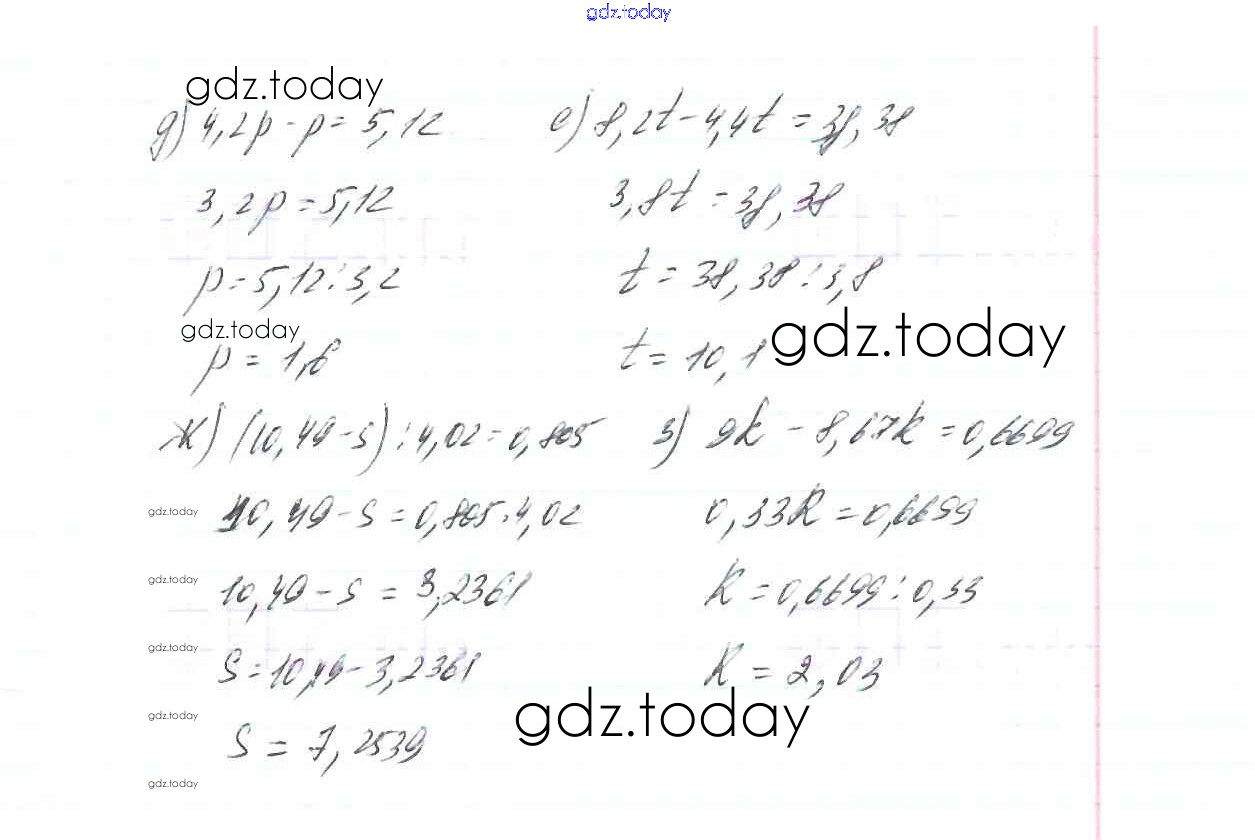 gdz.today
gdz.today
д) 4,2p - p = 5,12
3,2p = 5,12
p = 5,12 : 3,2
gdz.today
p = 1,6
е) 8,2t - 4,4t = 38,38
3,8t = 38,38
t = 38,38 : 3,8
t = 10,1
gdz.today
ж) (10,49 - s) : 4,02 = 0,805
gdz.today
10,49 - s = 0,805 · 4,02
gdz.today
10,49 - s = 3,2361
gdz.today
s = 10,49 - 3,2361
gdz.today
s = 7,2539
gdz.today
з) 9k - 8,67k = 0,6699
0,33k = 0,6699
k = 0,6699 : 0,33
k = 2,03
gdz.today